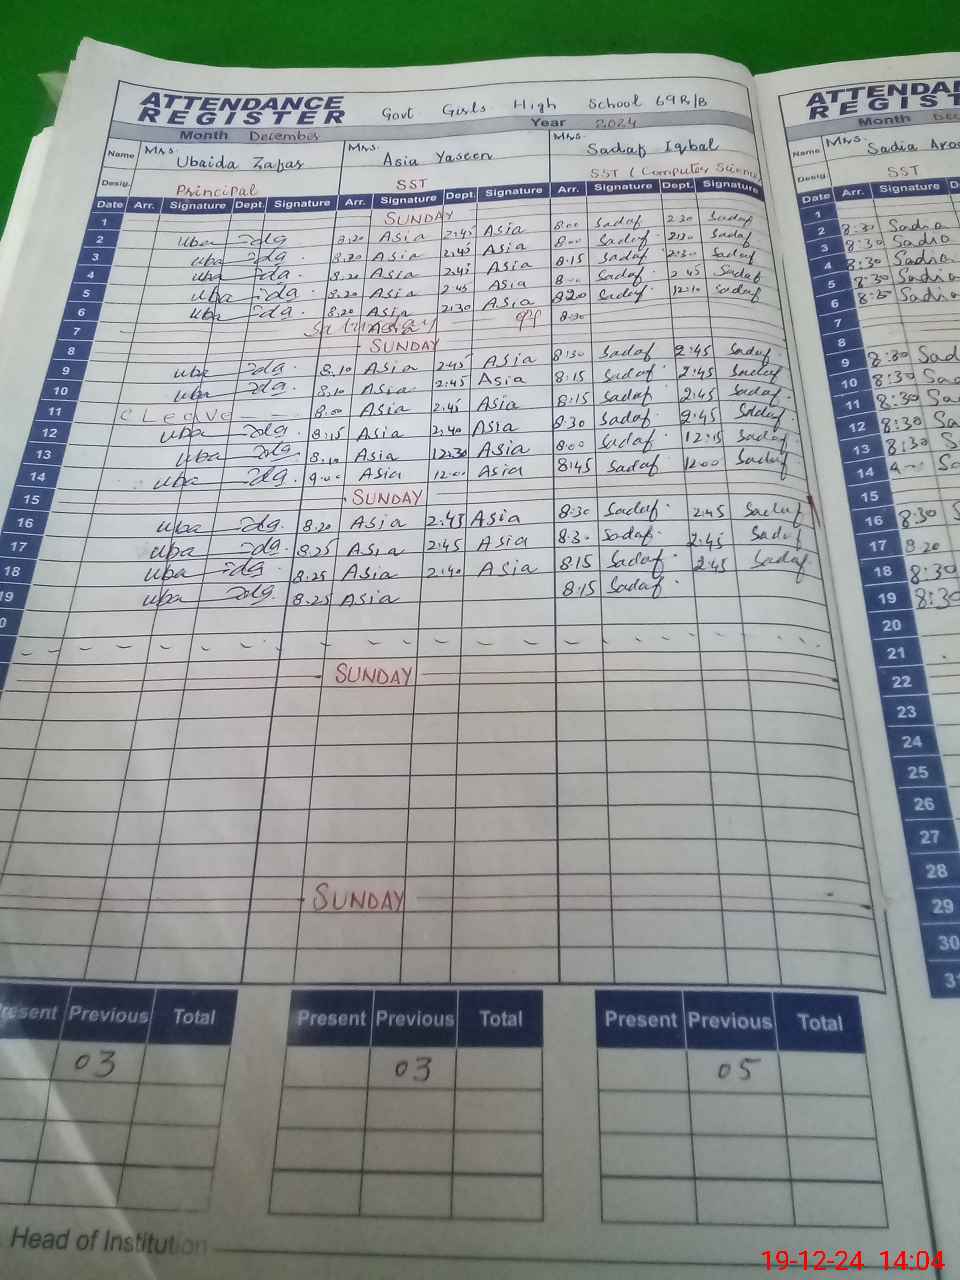 ATTENDANCE REGISTER Govt Girls High School 69R/B
Month December Year 2024
Name Mrs. Ubaida Zafar Mrs. Asia Yaseen Mrs. Sadaf Iqbal
Desig. Principal SST SST (Computer Science
Date Arr. Signature Dept. Signature Arr. Signature Dept. Signature Arr. Signature Dept. Signature
1 SUNDAY
2 uba 8:20 Asia 2:45 Asia 8:00 Sadaf 2:30 Sadaf
3 uba 8:20 Asia 2:45 Asia 8:00 Sadaf 2:30 Sadaf
4 uba 8:20 Asia 2:45 Asia 8:15 Sadaf 2:30 Sadaf
5 uba 8:20 Asia 2:45 Asia 8:00 Sadaf 2:45 Sadaf
6 uba 8:20 Asia 2:30 Asia 8:20 Sadaf 12:10 Sadaf
7 Saturday
8 SUNDAY
9 uba 8:10 Asia 2:45 Asia 8:30 Sadaf 2:45 Sadaf
10 uba 8:10 Asia 2:45 Asia 8:15 Sadaf 2:45 Sadaf
11 C Leave 8:00 Asia 2:45 Asia 8:15 Sadaf 2:45 Sadaf
12 uba 8:15 Asia 2:40 Asia 8:30 Sadaf 2:45 Sadaf
13 uba 8:10 Asia 12:30 Asia 8:00 Sadaf 12:15 Sadaf
14 uba 9:00 Asia 12:00 Asia 8:45 Sadaf 12:00 Sadaf
15 SUNDAY
16 uba 8:20 Asia 2:45 Asia 8:30 Sadaf 2:45 Sadaf
17 uba 8:25 Asia 2:45 Asia 8:30 Sadaf 2:45 Sadaf
18 uba 8:25 Asia 2:40 Asia 8:15 Sadaf 2:45 Sadaf
19 uba 8:25 Asia 8:15 Sadaf
SUNDAY
SUNDAY
Present Previous Total Present Previous Total Present Previous Total
03 03 05
Head of Institution
ATTENDAN
REGIST
Month Dec
Name Mrs. Sadia
Desig. SST
Date Arr. Signature
1
2 8:30 Sadia
3 8:30 Sadia
4 8:30 Sadia
5 8:30 Sadia
6 8:25 Sadia
7
8
9 8:30 Sad
10 8:30 Sad
11 8:30 Sad
12 8:30 Sa
13 8:30 S
14 Sa
15
16 8:30 S
17 8:20
18 8:30
19 8:30
20
21
22
23
24
25
26
27
28
29
30
31
19-12-24 14:04